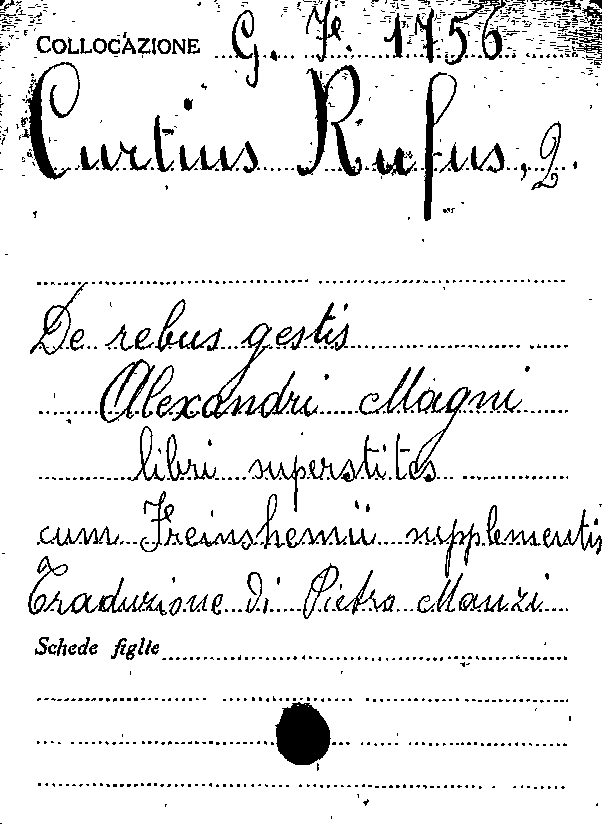 COLLOCAZIONE G. Fe. 1756
Curtius Rufus, Q.
De rebus gestis
Alexandri Magni
libri superstites
cum Freinshemii supplementis
Traduzione di Pietro Manzi
Schede figlie